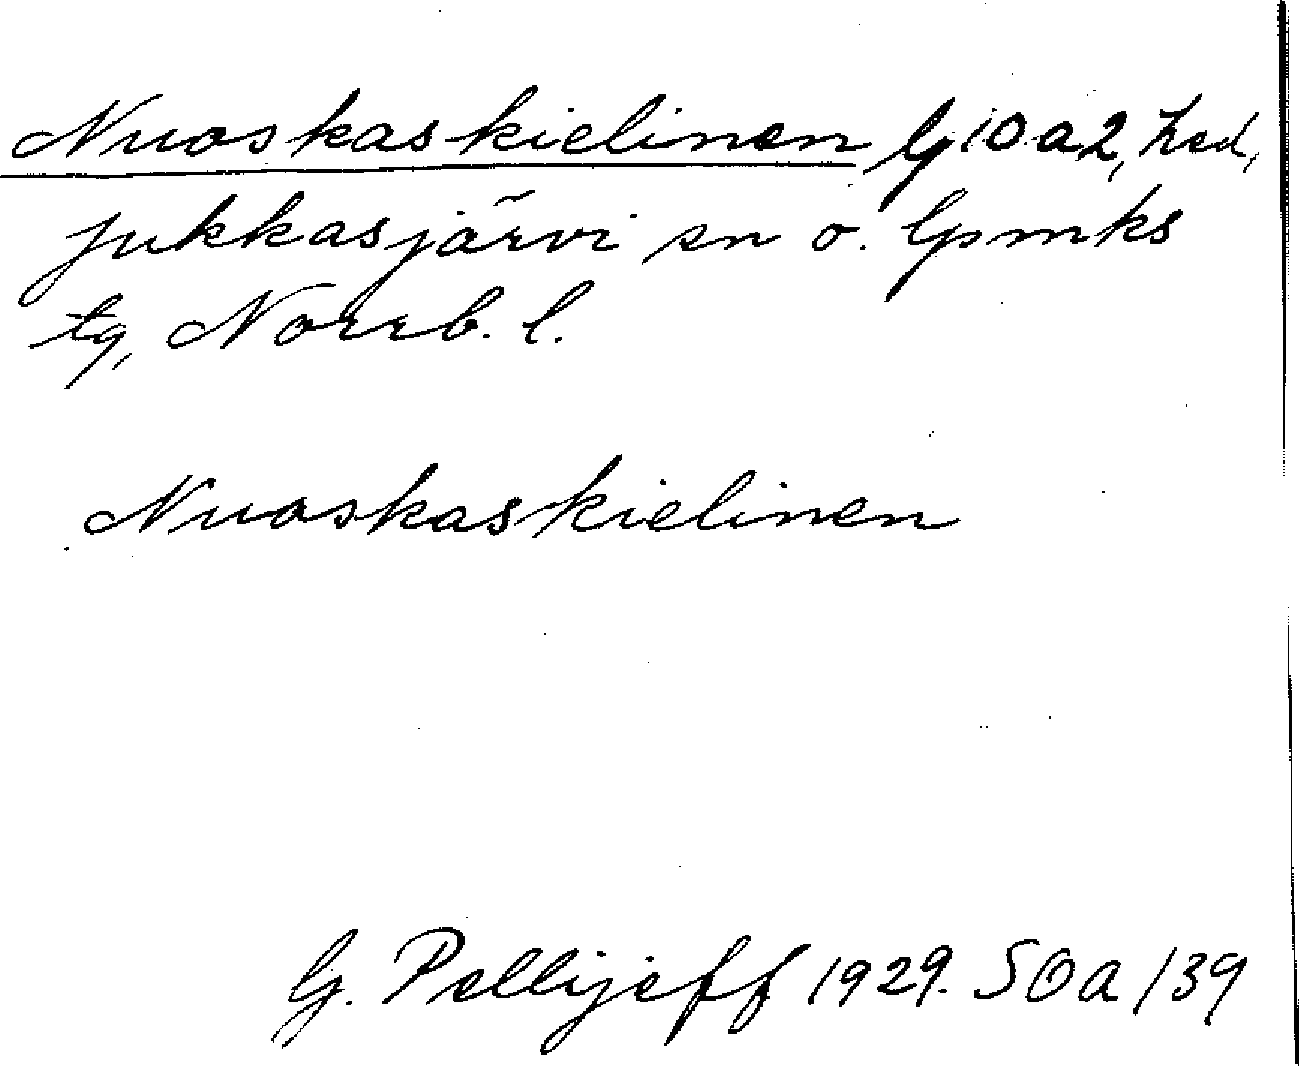 Nuoskaskielinen G 10 a 2, hed,
Jukkasjärvi sn o. lpmks
tg, Norrb. l.
Nuoskaskielinen
G. Pellijeff 1929. SOa/39